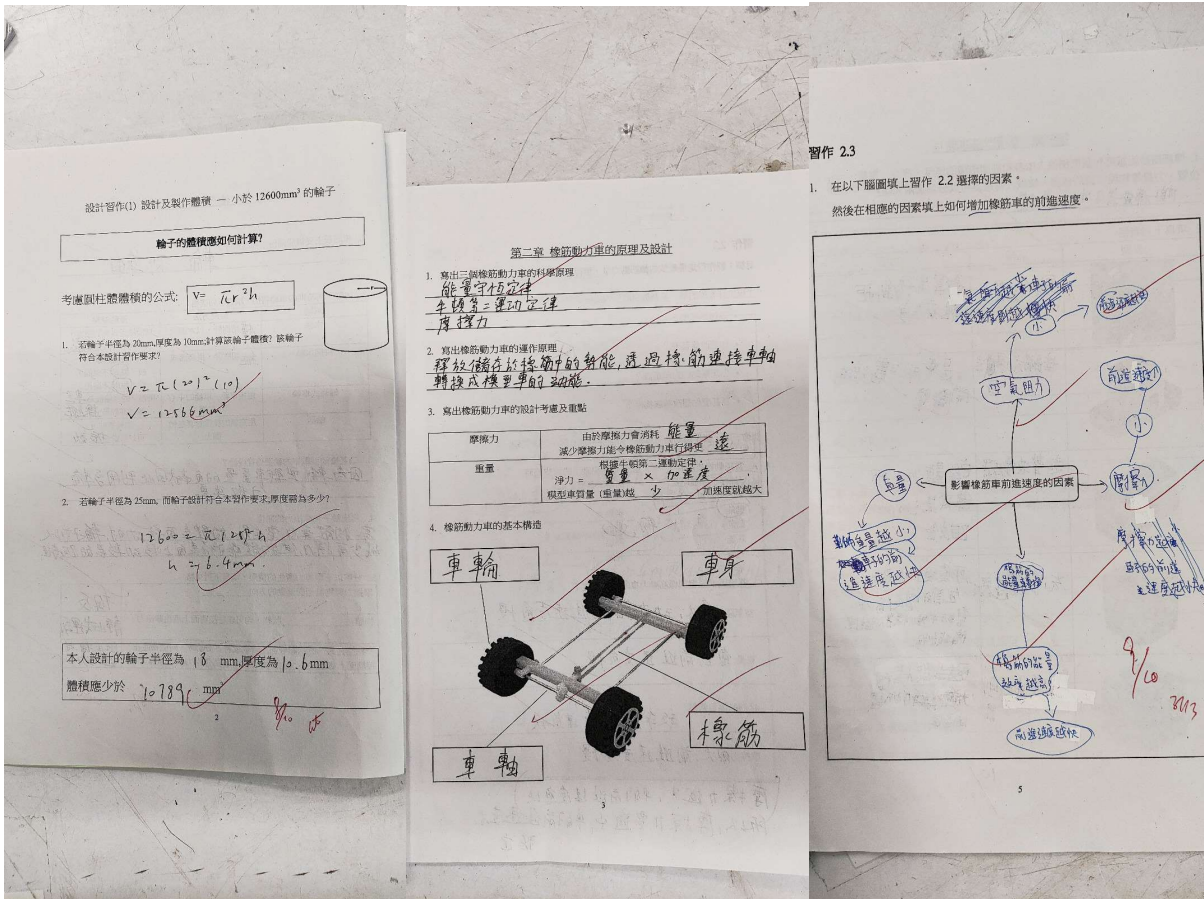 設計習作(1) 設計及製作體積 — 小於 12600mm³ 的輪子
輪子的體積應如何計算?
考慮圓柱體體積的公式: V= πr²h
1. 若輪子半徑為 20mm,厚度為 10mm,計算該輪子體積? 該輪子
符合本設計習作要求?
V = π(20)²(10)
V = 12566mm³
2. 若輪子半徑為 25mm, 而輪子設計符合本習作要求,厚度需為多少?
12600 = π(25)²h
h = 6.4mm.
本人設計的輪子半徑為 18 mm,厚度為 10.6 mm
體積應少於 10789 mm³
2
第二章 橡筋動力車的原理及設計
1. 寫出三個橡筋動力車的科學原理
能量守恆定律
牛頓第二運动定律
摩擦力
2. 寫出橡筋動力車的運作原理
釋放儲存於橡筋中的勢能,透過橡筋連接車軸
轉換成模型車的动能.
3. 寫出橡筋動力車的設計考慮及重點
摩擦力
由於摩擦力會消耗 能量
減少摩擦力能令橡筋動力車行得更 遠
重量
根據牛頓第二運動定律,
淨力 = 質量 × 加速度
模型車質量 (重量)越 少 ,加速度就越大
4. 橡筋動力車的基本構造
車輪
車身
橡筋
車軸
3
習作 2.3
1. 在以下腦圖填上習作 2.2 選擇的因素。
然後在相應的因素填上如何增加橡筋車的前進速度。
小
空氣阻力
小
影響橡筋車前進速度的因素
摩擦力
重量
車的重量越小
車子的前
進速度越快
橡筋的能量
效率越高
前進速度越快
8/10
5